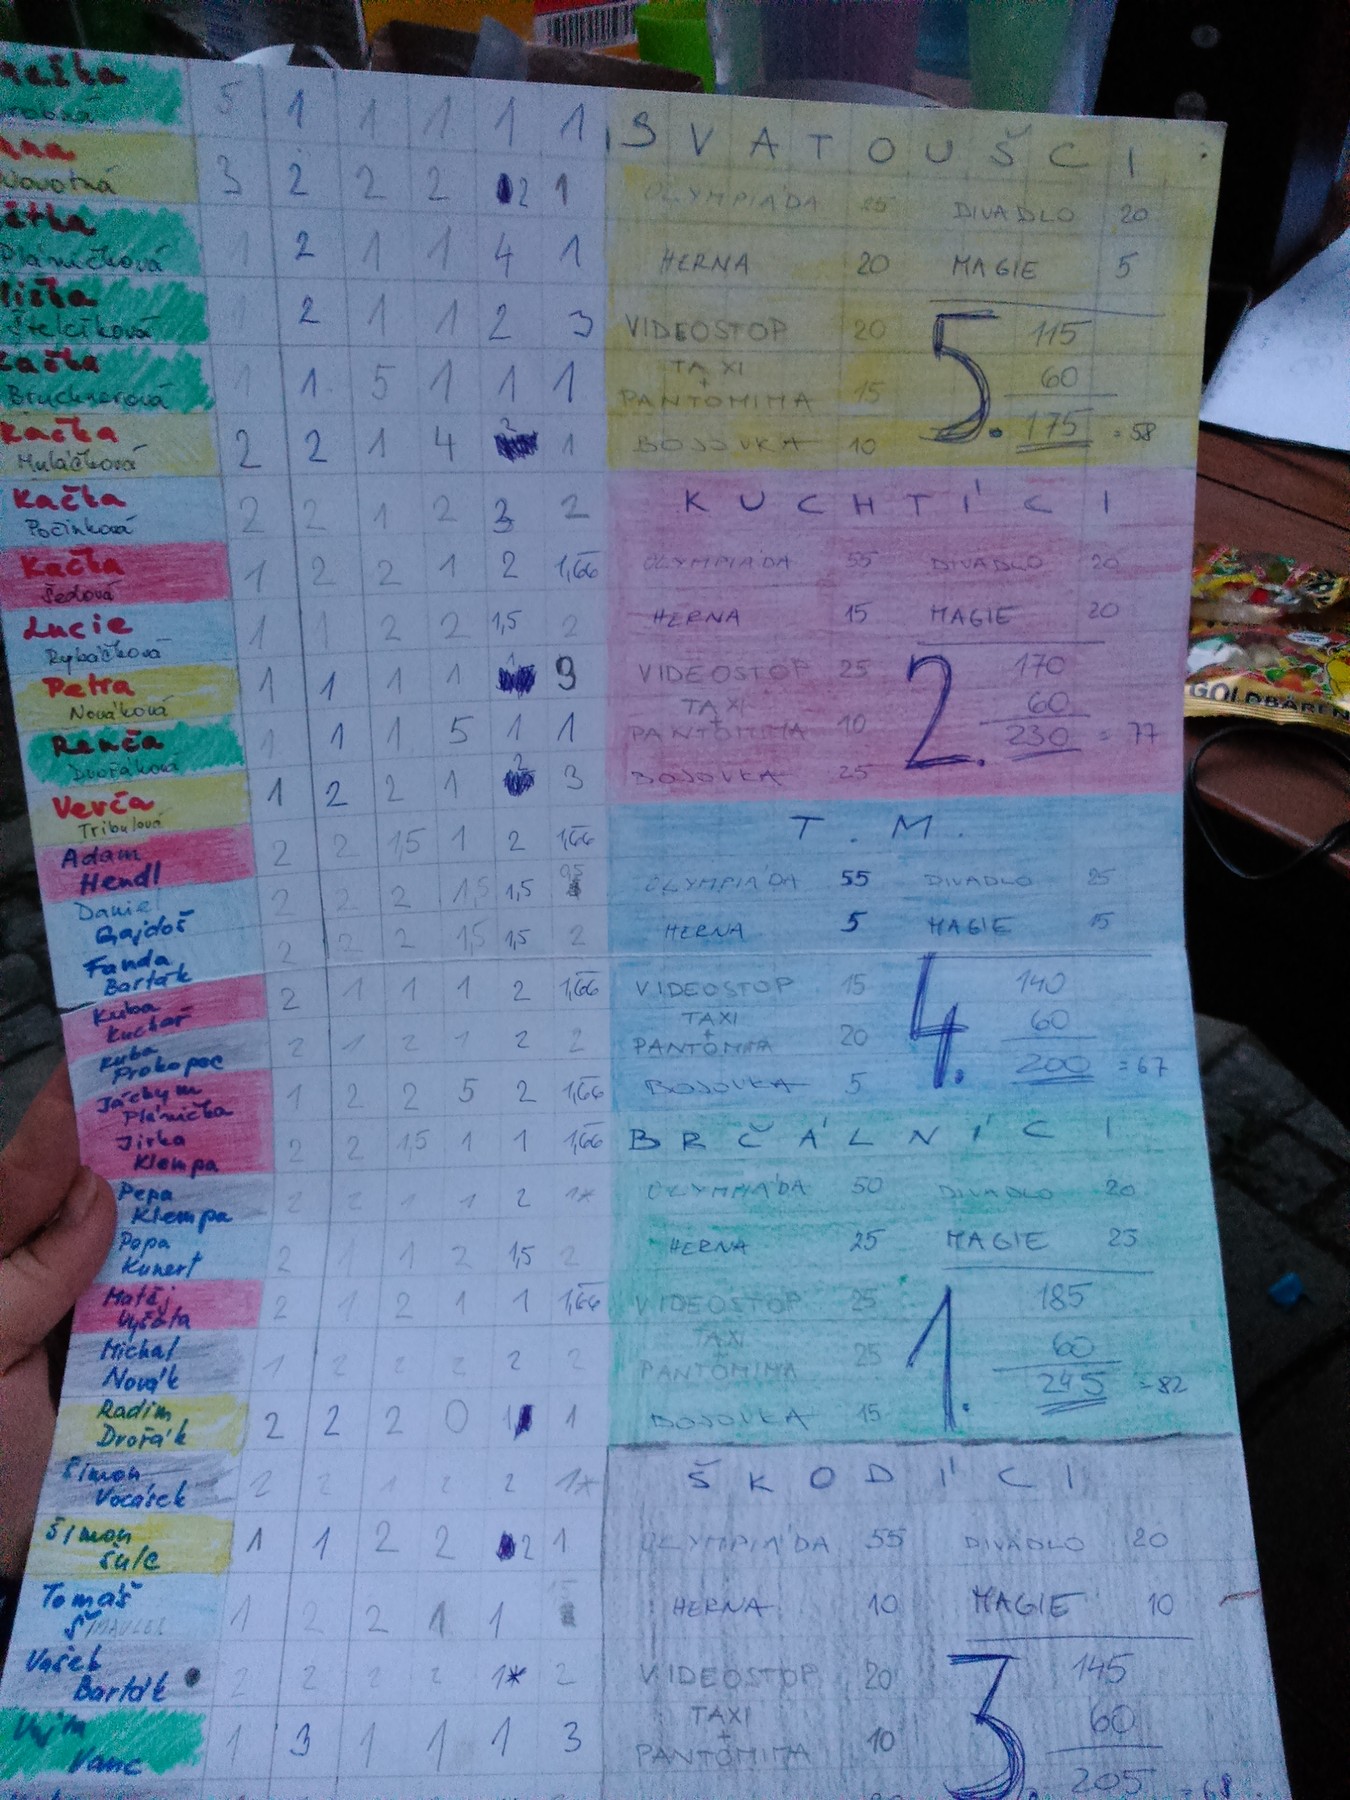 5 1 1 1 1 1
Novotná 3 2 2 2 2 1
Pláničková 1 2 1 1 4 1
Štelcíková 1 2 1 1 2 3
Bruchnerová 1 1 5 1 1 1
Kačka
Muláčková 2 2 1 4 2 1
Kačka
Počinková 2 2 1 2 3 2
Kačka
Šedová 1 2 2 1 2 1,66
Lucie
Rybáčková 1 1 2 2 1,5 2
Petra
Nováková 1 1 1 1 3
Renča
Dvořáková 1 1 1 5 1 1
Verča
Tribulová 1 2 2 1 2 3
Adam
Hendl 2 2 1,5 1 2 1,66
Daniel
Gajdoš 2 2 2 1,5 1,5
Fanda
Barták 2 2 2 1,5 1,5 2
Kuba
Kuchař 2 1 1 1 2 1,66
Kuba
Prokopec 2 1 2 1 2 2
Jáchym
Plánička 1 2 2 5 2 1,66
Jirka
Klempa 2 2 1,5 1 1 1,66
Pepa
Klempa 2 2 1 1 2 1*
Popa
Kunert 2 1 1 2 1,5 2
Matěj
Vyšata 2 1 2 1 1 1,66
Michal
Novák 1 2 2 2 2 2
Radim
Dvořák 2 2 2 0 1 1
Šimon
Vocásek 2 2 1 2 2 1*
Šimon
Šulc 1 1 2 2 2 1
Tomáš
1 2 2 1 1
Vašek
Barták 2 2 2 2 1* 2
Vojta
Vanc 1 3 1 1 1 3
SVATOUŠCI
OLYMPIÁDA 25 DIVADLO 20
HERNA 20 MAGIE 5
VIDEOSTOP 20 115
TAXI 60
+
PANTOMIMA 15 5. 175 = 58
BOJOVKA 10
KUCHTÍCI
OLYMPIÁDA 55 DIVADLO 20
HERNA 15 MAGIE 20
VIDEOSTOP 25 170
TAXI 60
+
PANTOMIMA 10 2. 230 = 77
BOJOVKA 25
T. M.
OLYMPIÁDA 55 DIVADLO 25
HERNA 5 MAGIE 15
VIDEOSTOP 15 140
TAXI 60
+
PANTOMIMA 20 4. 200 = 67
BOJOVKA 5
BRČÁLNÍCI
OLYMPIÁDA 50 DIVADLO 20
HERNA 25 MAGIE 25
VIDEOSTOP 25 185
TAXI 60
+
PANTOMIMA 25 1. 245 = 82
BOJOVKA 15
ŠKODÍCI
OLYMPIÁDA 55 DIVADLO 20
HERNA 10 MAGIE 10
VIDEOSTOP 20 145
TAXI 60
+
PANTOMIMA 10 3. 205 = 68
GOLDBÄREN